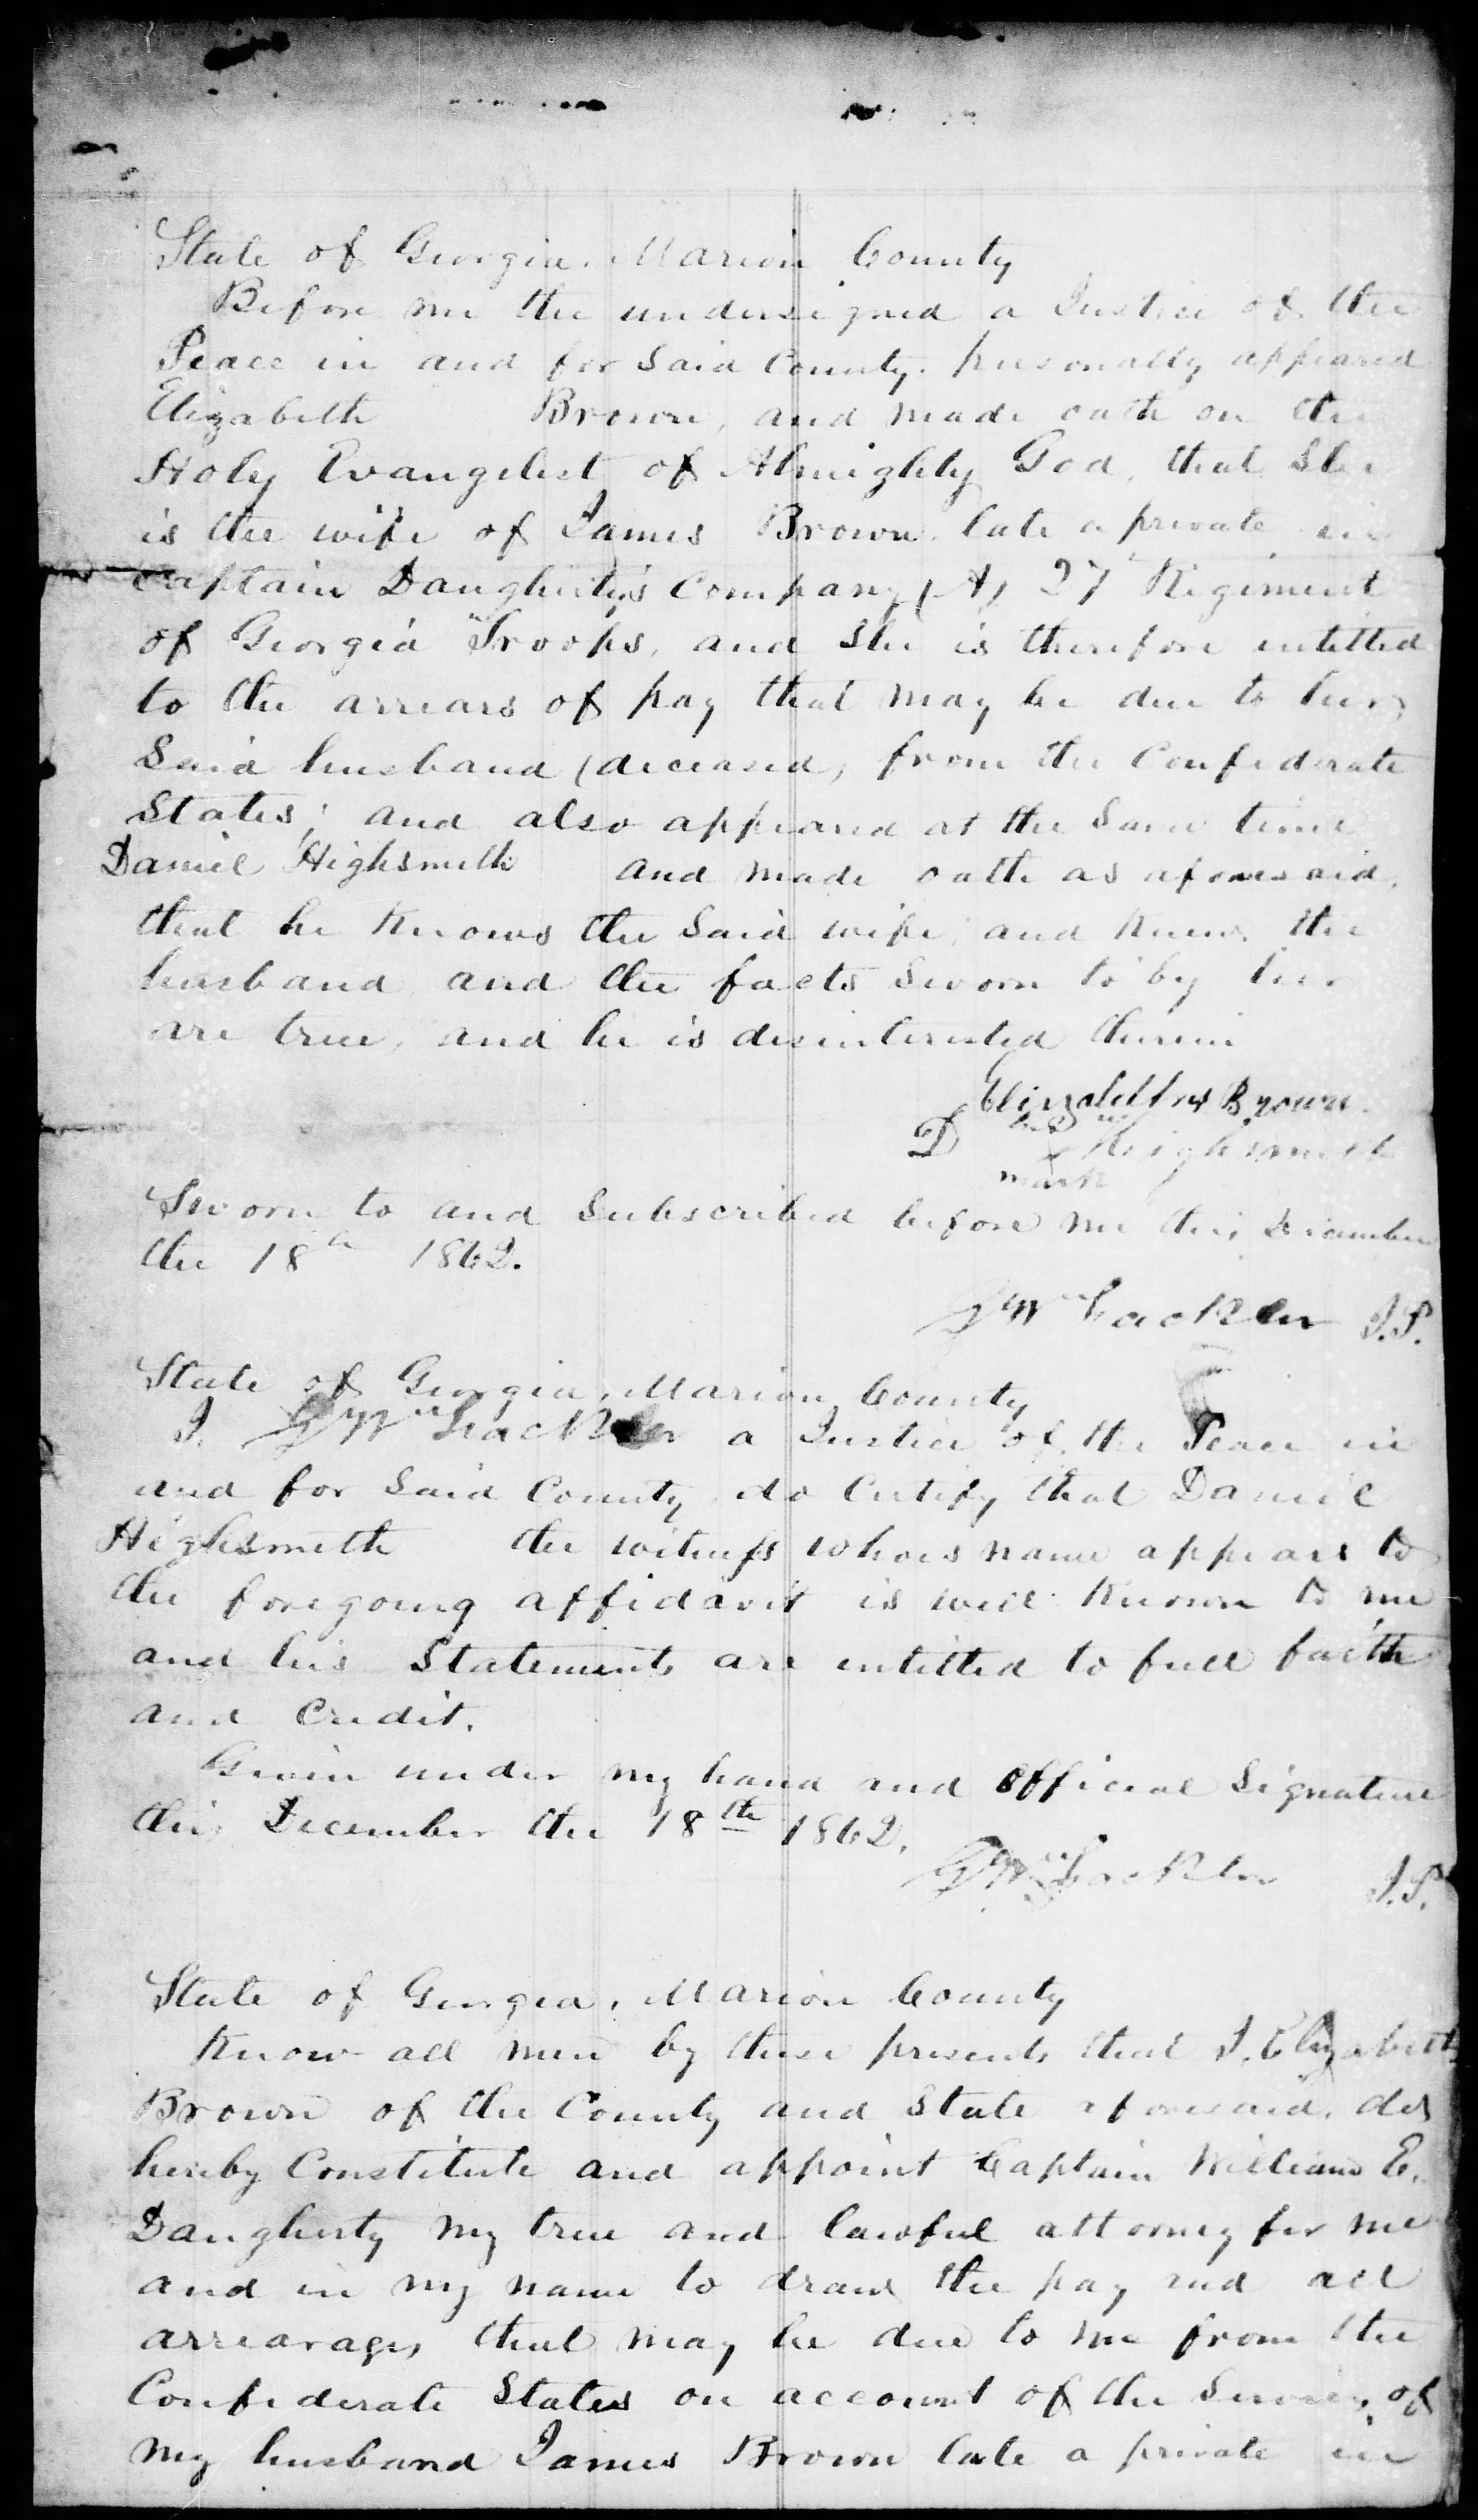 State of Georgia, Marion County
Before me the undersigned a Justice of the
Peace in and for said County personally appeared
Elizabeth Brown, and made oath on the
Holy Evangelist of Almighty God, that she
is the wife of James Brown late a private in
Captain Daugherty's Company (A) 27 Regiment
of Georgia Troops, and she is therefore entitled
to the arrears of pay that may be due to her
Said husband (deceased) from the Confederate
States; and also appeared at the same time
Daniel Highsmith and made oath as aforesaid,
that he knows the said wife, and knew the
husband and the facts sworn to by her
are true, and he is disinterested therein
Elizabeth Brown
D his Highsmith
mark
Sworn to and subscribed before me this December
the 18th 1862.
J.P.
State of Georgia, Marion County
I. a Justice of the Peace in
and for said County do Certify that Daniel
Highsmith the witness whoes name appears to
the foregoing affidavit is well known to me
and his Statements are entitled to full faith
and Credit.
Given under my hand and Official Signature
this December the 18th 1862.
J.P.
State of Georgia, Marion County
Know all men by these presents that I. Elizabeth
Brown of the County and State aforesaid, do
hereby Constitute and appoint Captain William E.
Daugherty my true and lawful attorney for me
and in my name to draw the pay and all
arrearages that may be due to me from the
Confederate States on account of the Services of
my husband James Brown late a private in